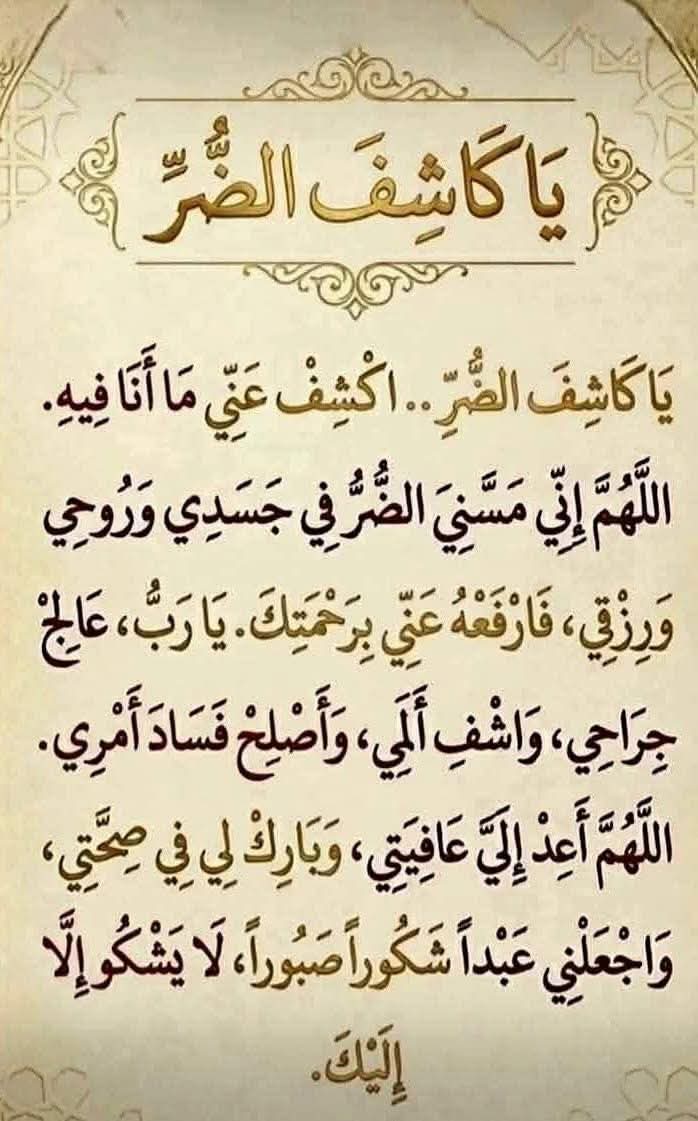 يَا كَاشِفَ الضُّرِّ
يَا كَاشِفَ الضُّرِّ .. اكْشِفْ عَنِّي مَا أَنَا فِيهِ.
اللَّهُمَّ إِنِّي مَسَّنِيَ الضُّرُّ فِي جَسَدِي وَرُوحِي
وَرِزْقِي، فَارْفَعْهُ عَنِّي بِرَحْمَتِكَ. يَا رَبُّ، عَالِجْ
جِرَاحِي، وَاشْفِ أَلَمِي، وَأَصْلِحْ فَسَادَ أَمْرِي.
اللَّهُمَّ أَعِدْ إِلَيَّ عَافِيَتِي، وَبَارِكْ لِي فِي صِحَّتِي،
وَاجْعَلْنِي عَبْداً شَكُوراً صَبُوراً، لَا يَشْكُو إِلَّا
إِلَيْكَ.